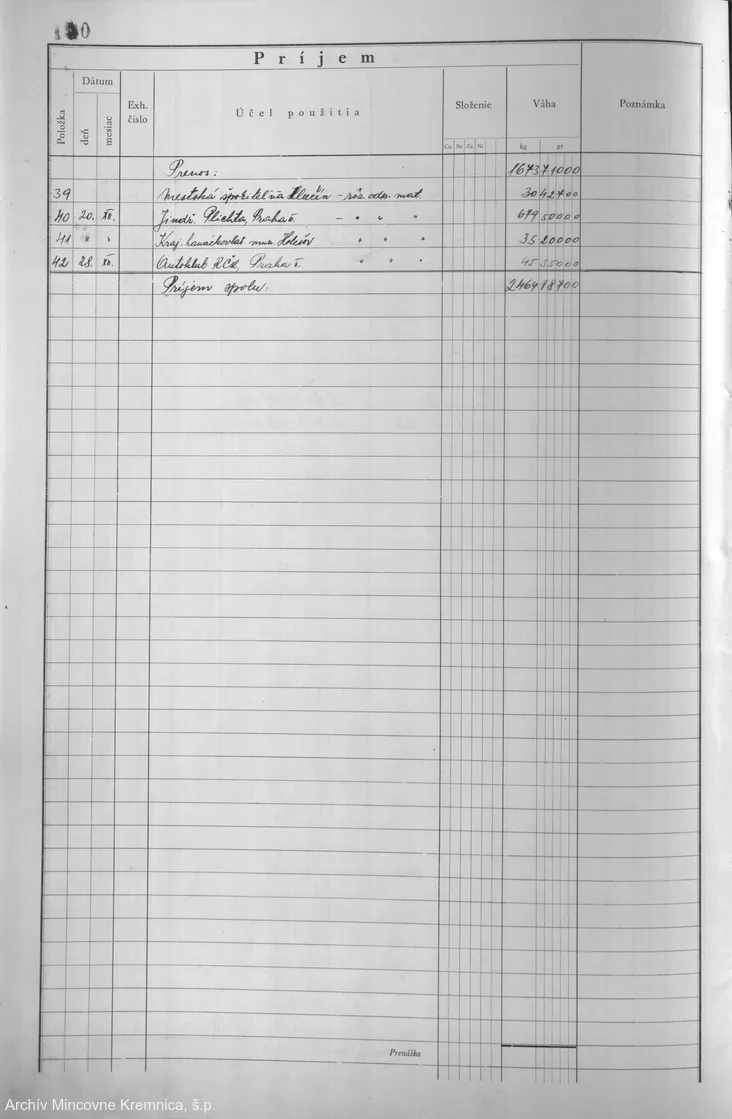 Príjem
Položka
Dátum
deň
mesiac
Exh. číslo
Účel použitia
Složenie
Cu Sn Zn Ni
Váha
kg gr
Poznámka
Prenos: 1673 71000
39 Mestská sporiteľňa Hlučín – rôz odp. mat. 30 42700
40 20. XII. Jindř. Plichta, Praha – " " " 679 50000
41 " " Kraj. Holešov " " " 35 20000
42 28. XII. Autoklub RČs, Praha " " " 45 35000
Príjem spolu: 2464 18700
Prenáška
Archív Mincovne Kremnica, š.p.